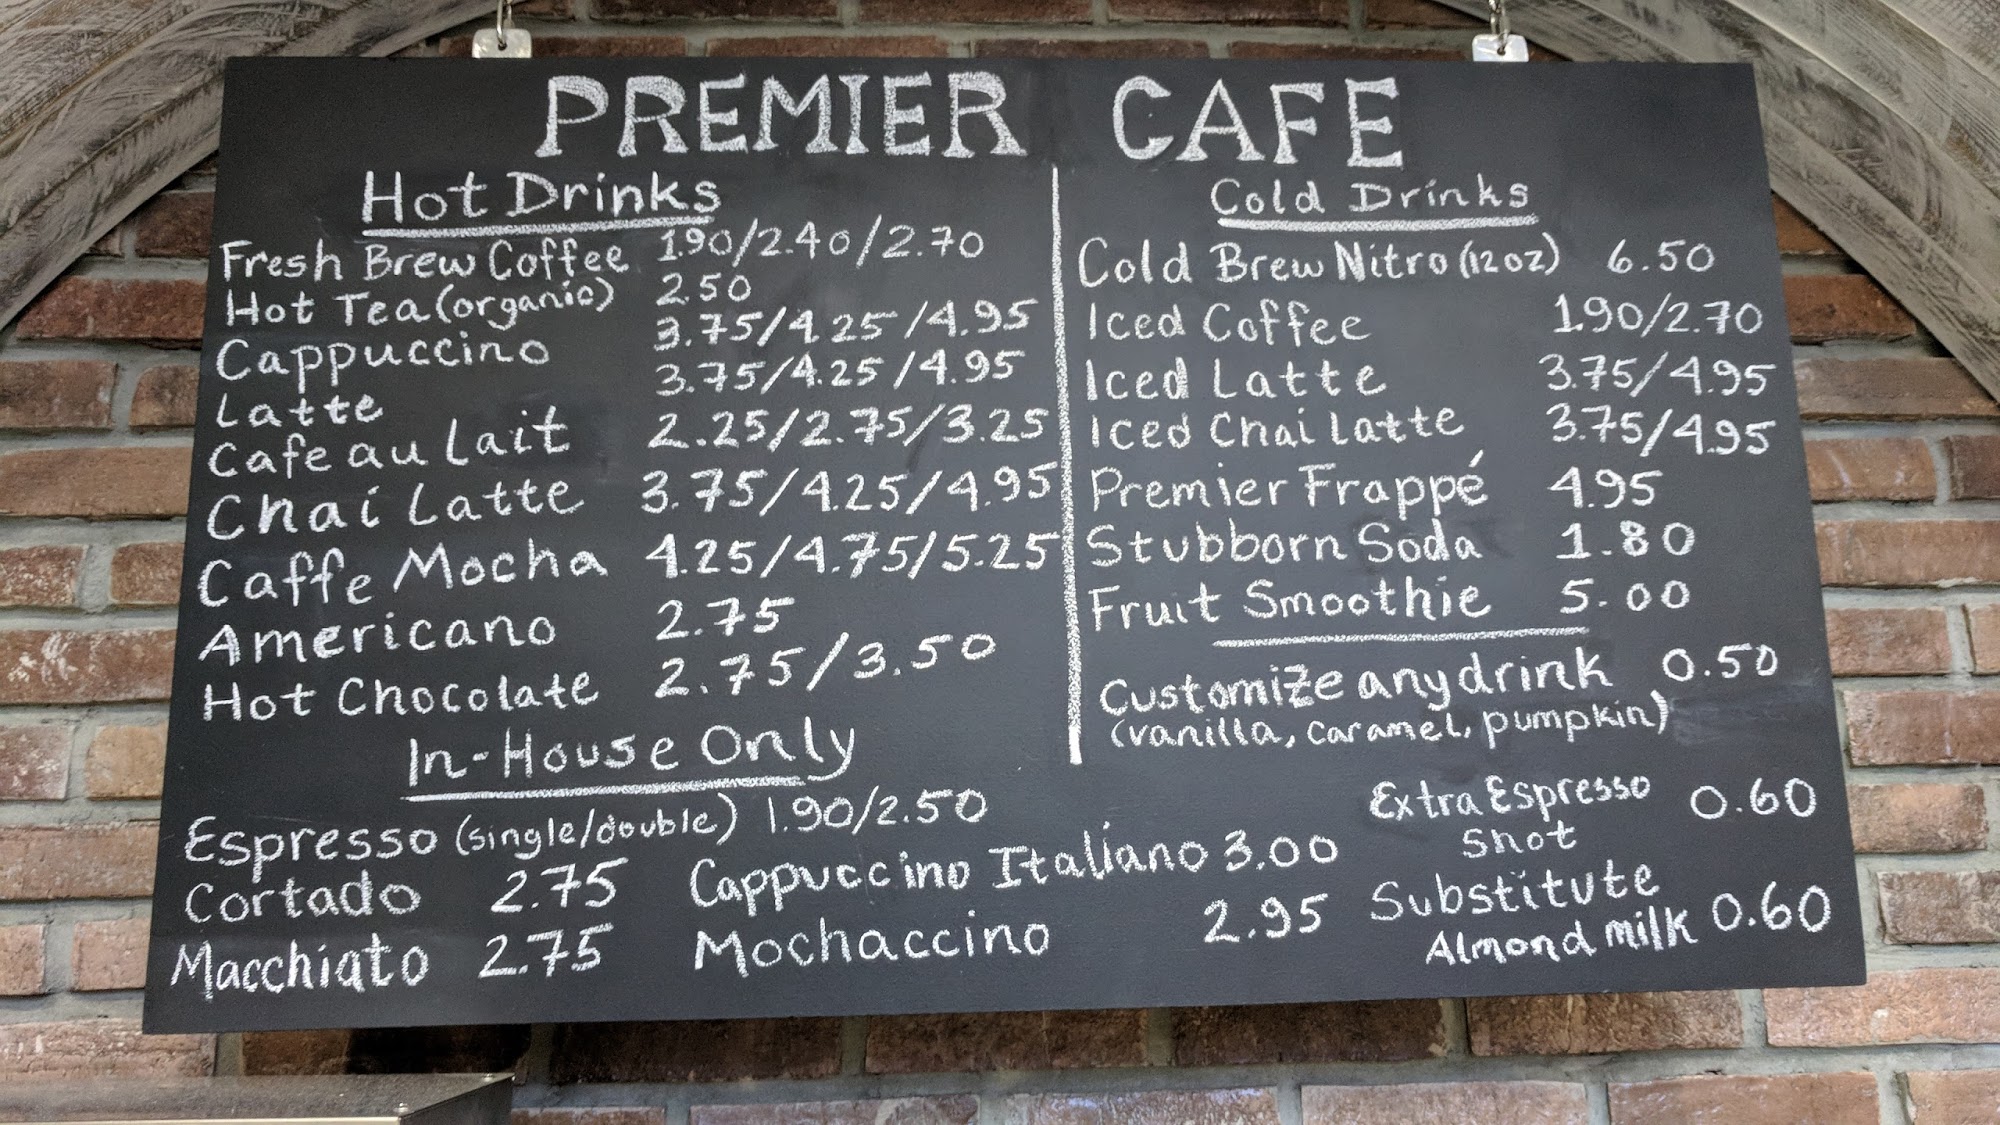 PREMIER CAFE
Hot Drinks
Fresh Brew Coffee 1.90/2.40/2.70
Hot Tea (organic) 2.50
Cappuccino 3.75/4.25/4.95
Latte 3.75/4.25/4.95
Cafe au Lait 2.25/2.75/3.25
Chai Latte 3.75/4.25/4.95
Caffe Mocha 4.25/4.75/5.25
Americano 2.75
Hot Chocolate 2.75/3.50
Cold Drinks
Cold Brew Nitro (12oz) 6.50
Iced Coffee 1.90/2.70
Iced Latte 3.75/4.95
Iced Chai Latte 3.75/4.95
Premier Frappé 4.95
Stubborn Soda 1.80
Fruit Smoothie 5.00
Customize any drink 0.50
(vanilla, caramel, pumpkin)
In-House Only
Espresso (single/double) 1.90/2.50
Cortado 2.75
Macchiato 2.75
Cappuccino Italiano 3.00
Mochaccino 2.95
Extra Espresso 0.60
Shot
Substitute
Almond milk 0.60